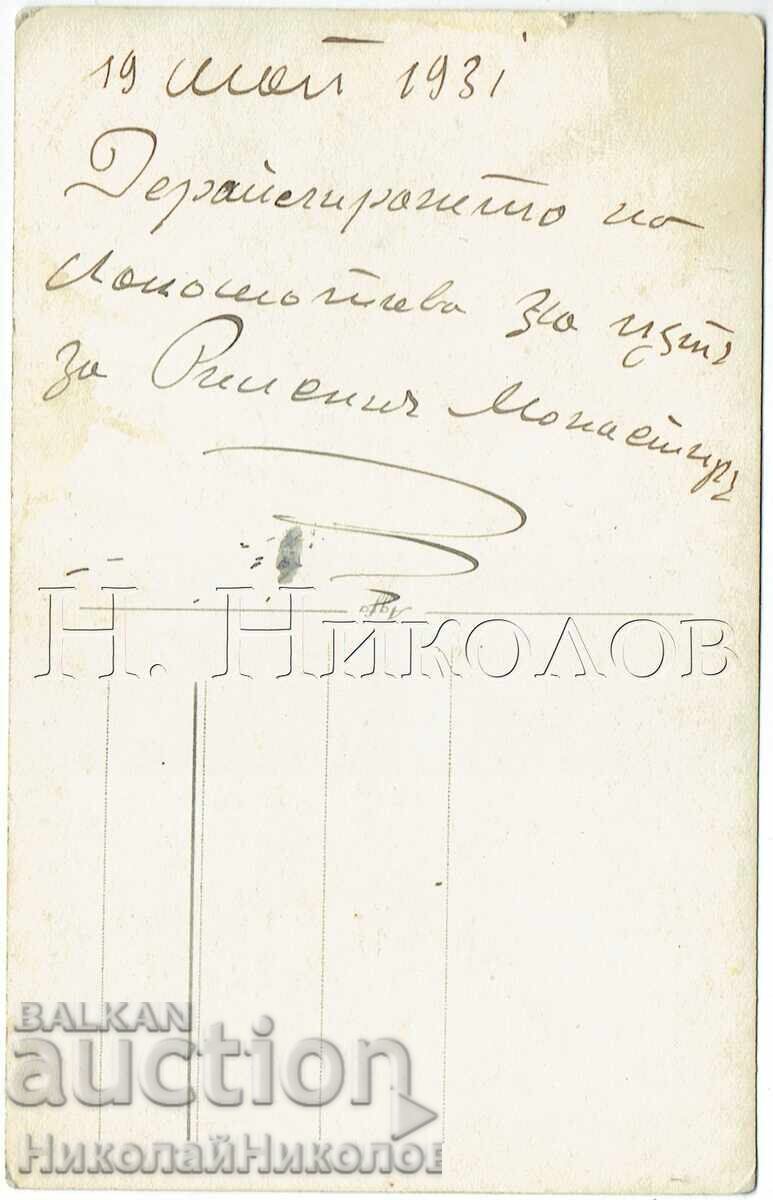 19 Май 1931
Дерайлирането на
Локомотива за пътя
за Рилския Монастиръ
Agfa
Н. Николов
BALKAN
auction
НиколайНиколов